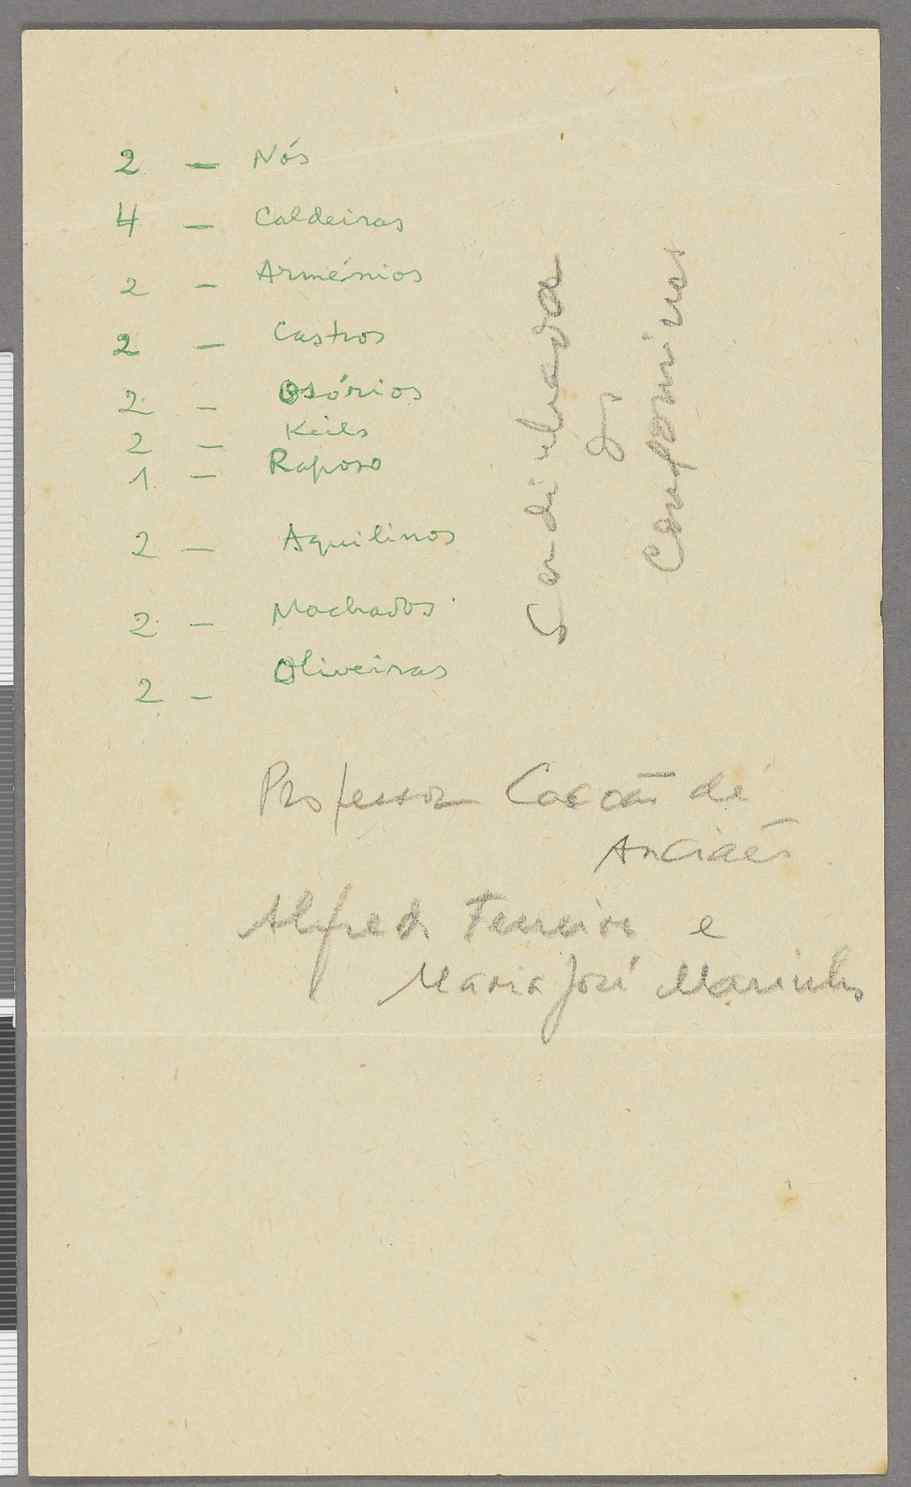 2 — Nós
4 — Caldeiras
2 — Arménios
2 — Castros
2 — Osórios
2 — Keils
1 — Raposo
2 — Aquilinos
2 — Machados
2 — Oliveiras
Sardinhada
dos
Conf
Professor de
Anciães
Alfredo Ferreira e
Maria José Marinho